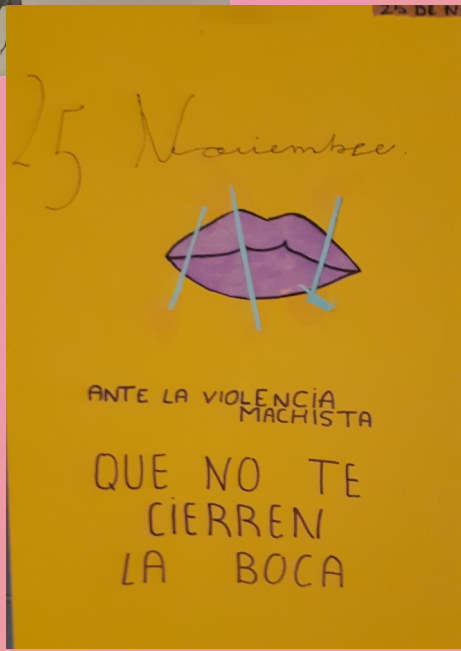 25 DE N
25 Noviembre.
ANTE LA VIOLENCIA
MACHISTA
QUE NO TE
CIERREN
LA BOCA